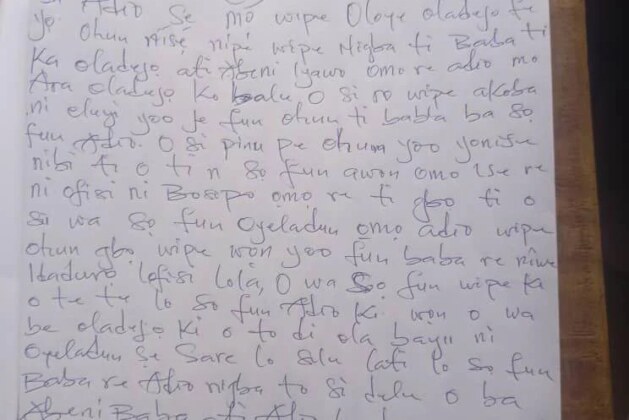 Adio Se mo wipe Oloye oladejo te
yo ohun nise nipe wipe Nigba ti Baba ti
Ka oladejo ati Abeni Iyawo omo re adio mo
Ara oladejo Ko balu O si ro wipe akoba
ni eleyi yoo je fun ohun ti babla ba so
fun Adio. O si pinu pe ohun yoo yonise
nibi ti o ti n so fun awon omo ise re
ni ofisi ni Bosepo omo re ti gbo ti o
si wa so fun Oyeladun omo adio wipe
ohun gbo wipe won yoo fun baba re niwe
Idaduro lofisi lola, O wa so fun wipe ka
o te te lo so fun Adio Ki won o wa
be oladejo Ki o to di ola bayii ni
Oyeladun Se Sare lo sile lati lo so fun
Baba re Adio nigba to si dele o ba
Abeni Baba ati Adio